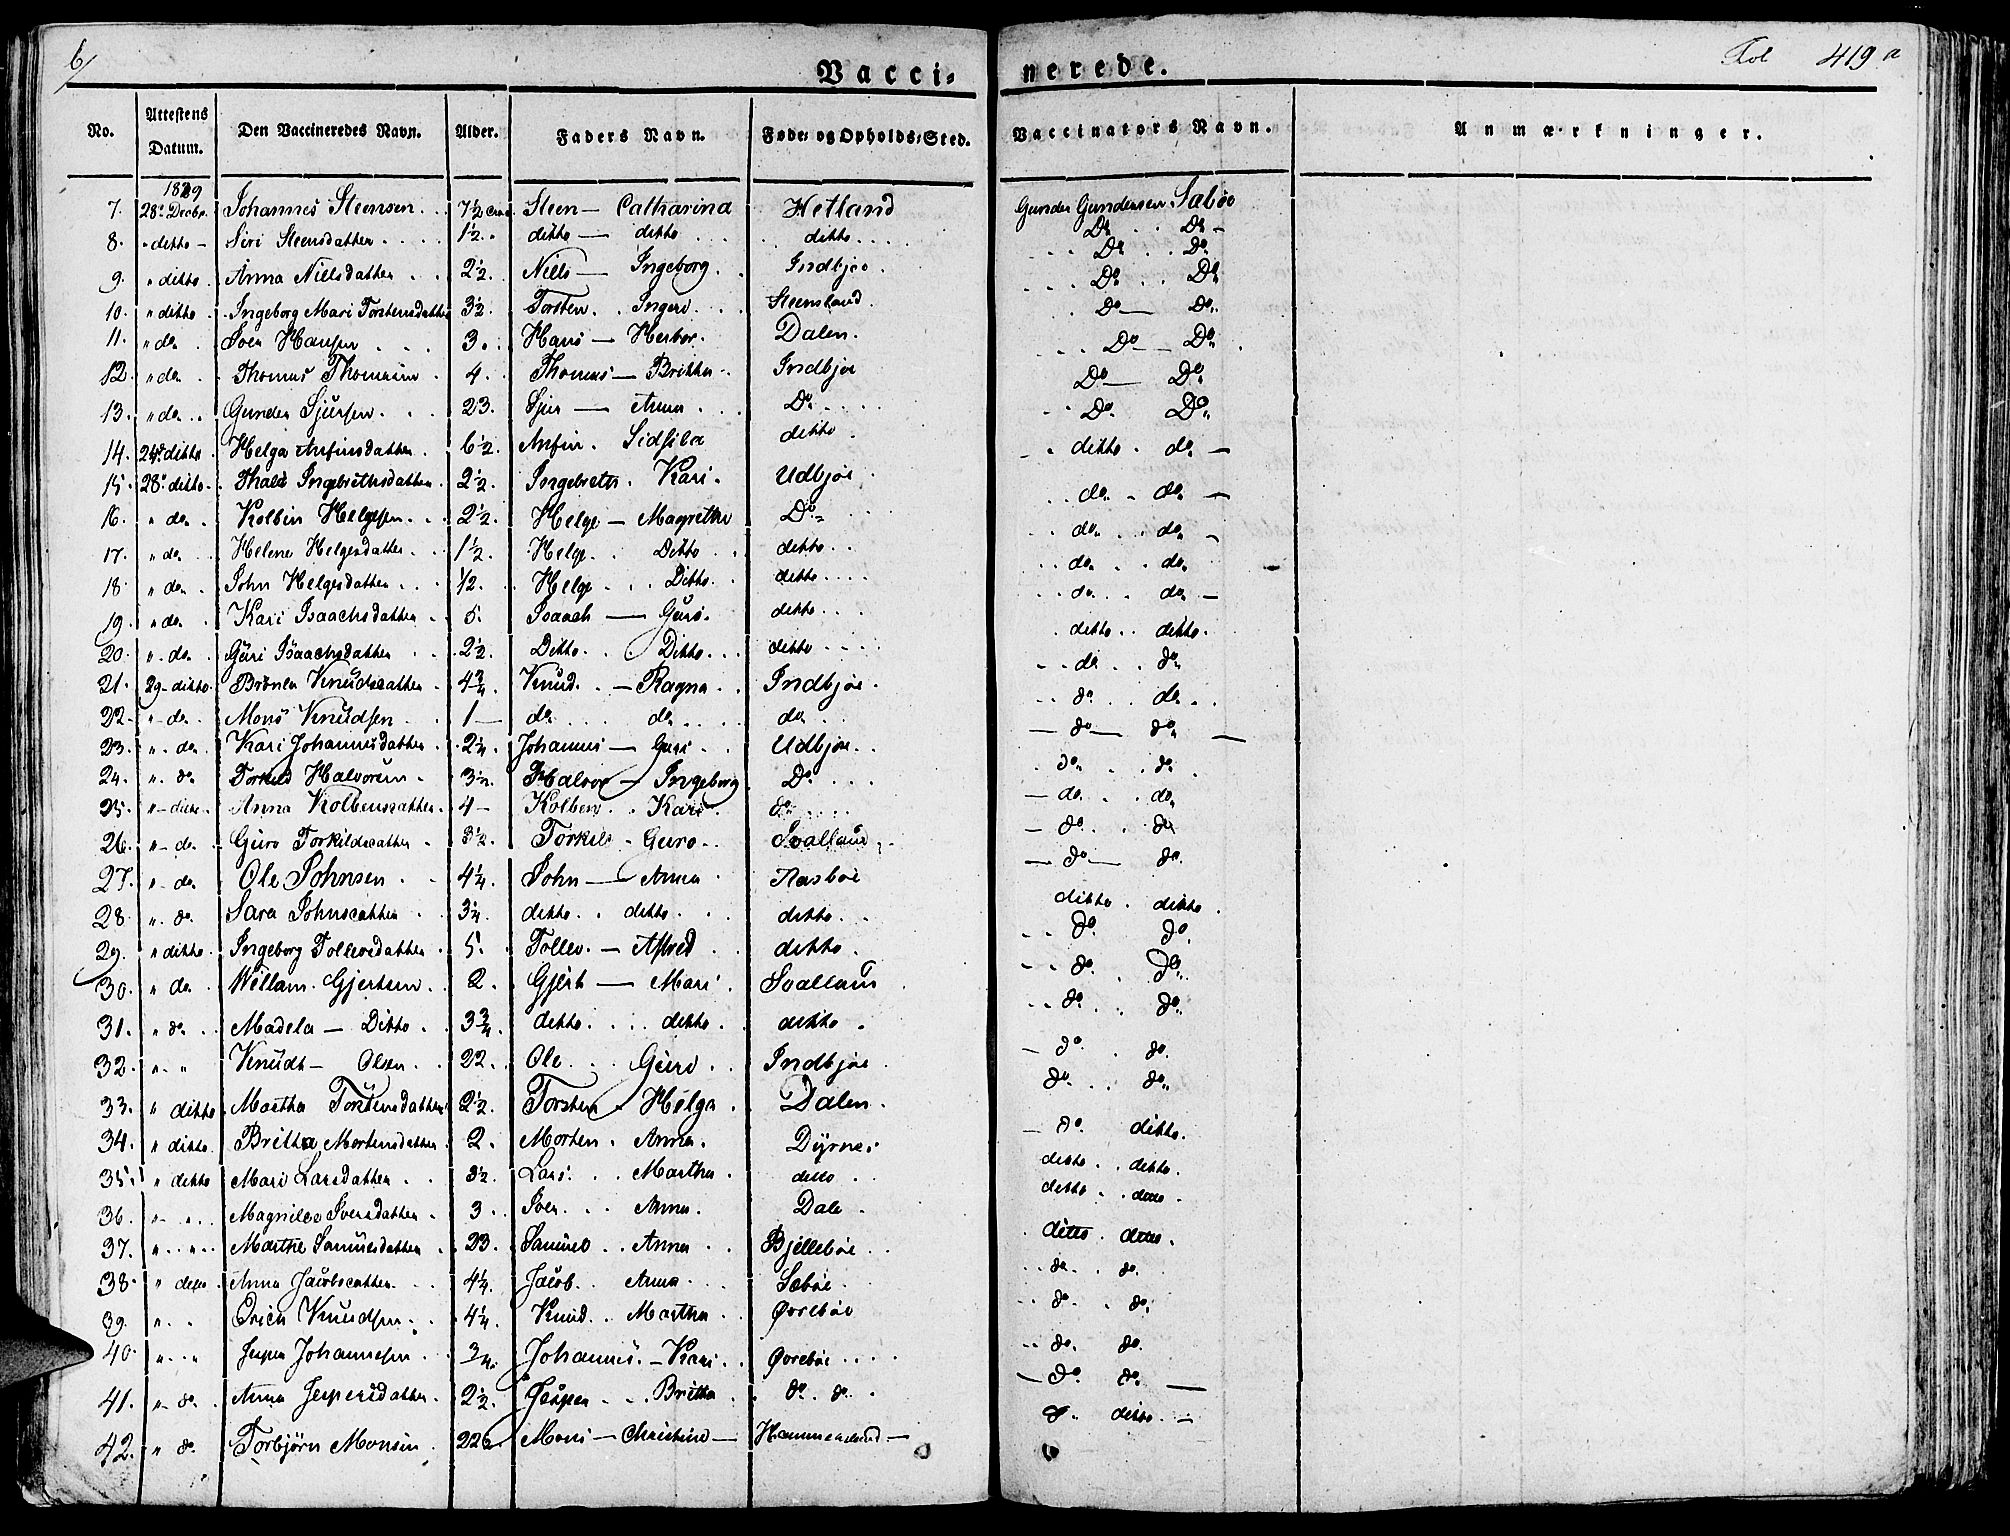 6/ Vacci- nerede. Fol 419 a
No. Attestens Datum. Den Vaccineredes Navn. Alder. Faders Navn. Føde- og Opholds-Sted. Vaccinators Navn. Anmærkninger.
1829
7. 28. Decbr. Johannes Steensen 7½ Steen — Catharina Hetland Gunder Gundersen Sæbøe
8. " ditto — Siri Steensdatter 1½ ditto — ditto ditto Do Do —
9. " ditto Anna Nielsdatter 2½ Niels — Ingeborg Indbjoe Do Do
10. " ditto Ingeborg Mari Torstensdatter 3½ Torsten Ingerd Steensland Do Do
11. " do Sven Hansen 3. Hans — Herbor Dalen Do — Do
12. " do Thomas Thomasen 4. Thomas — Britha Indbjoe Do — Do
13. " do Gunder Sjursen 23. Sjur — Anna Do Do — Do
14. 24. ditto Helga Anfinsdatter 6½ Anfin Sidsila ditto Do Do
15. 28. ditto Ingebrethsdatter 2½ Ingebreth Kari Udbjoe ditto do —
16. " do Kolbin Helgesen 2½ Helge — Magrethe Do do do —
17. " do Helene Helgesdatter 1½ Helge Ditto ditto do do —
18. " do John Helgesdatter ½ Helge Ditto ditto do do
19. " do Kari Isaachsdatter 5. Isaach — Guro ditto do do —
20. " do Guri Isaachsdatter 2½ Ditto Ditto ditto ditto ditto
21. 29 - ditto Knudsdatter 4¾ Knud — Ragna Indbjoe do do
22. " do Mons Knudsen 1 — do do do do do
23. " do Kari Johannesdatter 2¼ Johannes — Guri Udbjoe — do — do —
24. " do Halvorsen 3½ Halvor — Ingeborg Do do do
25. " ditto Anna Kolbensdatter 4 — Kolben Kari do — do do
26. " do Guro Torkildsdatter 3½ Torkild Guro Svalland — do do
27. " do Ole Johnsen 4¼ John — Anna Aasboe — do — do
28. " do Sara Johnsdatter 3¼ ditto ditto ditto ditto ditto
29. " ditto Ingeborg Tollevsdatter 5. Tollev — Astred ditto do do
30. " do Willam Gjertsen 2. Gjert — Mari Svalland do do
31. " do Madela — Ditto 3¾ ditto ditto ditto do do
32. " " Knudt — Olsen 22. Ole Guro Indbjoe — do do
33. " ditto Martha Torstensdatter 2½ Torsten Helga Dalen do do
34. " ditto Britha Mortensdatter 2. Morten Anna Dyrnes — do ditto
35. " ditto Mari Larsdatter 3½ Lars Martha ditto ditto ditto
36. " " Magnilda Svensdatter 3. Sven Anna Dale ditto ditto
37. " " Marthe Samuelsdatter 23. Samuel Anna Bjellebøe ditto ditto
38. " ditto Anna Jacobsdatter 4¼ Jacob Anna Sæbøe do do
39. " " Erich Knudsen 4¼ Knud Martha Øvrebøe do do
40. " " Jesper Johannesen ¾ Johannes — Kari Øvrebøe do do
41. " do Anna Jespersdatter 2½ Jesper Britha do do — do do —
42. " do Torbjørn Monsen 22 Mons — Christine — — do ditto —